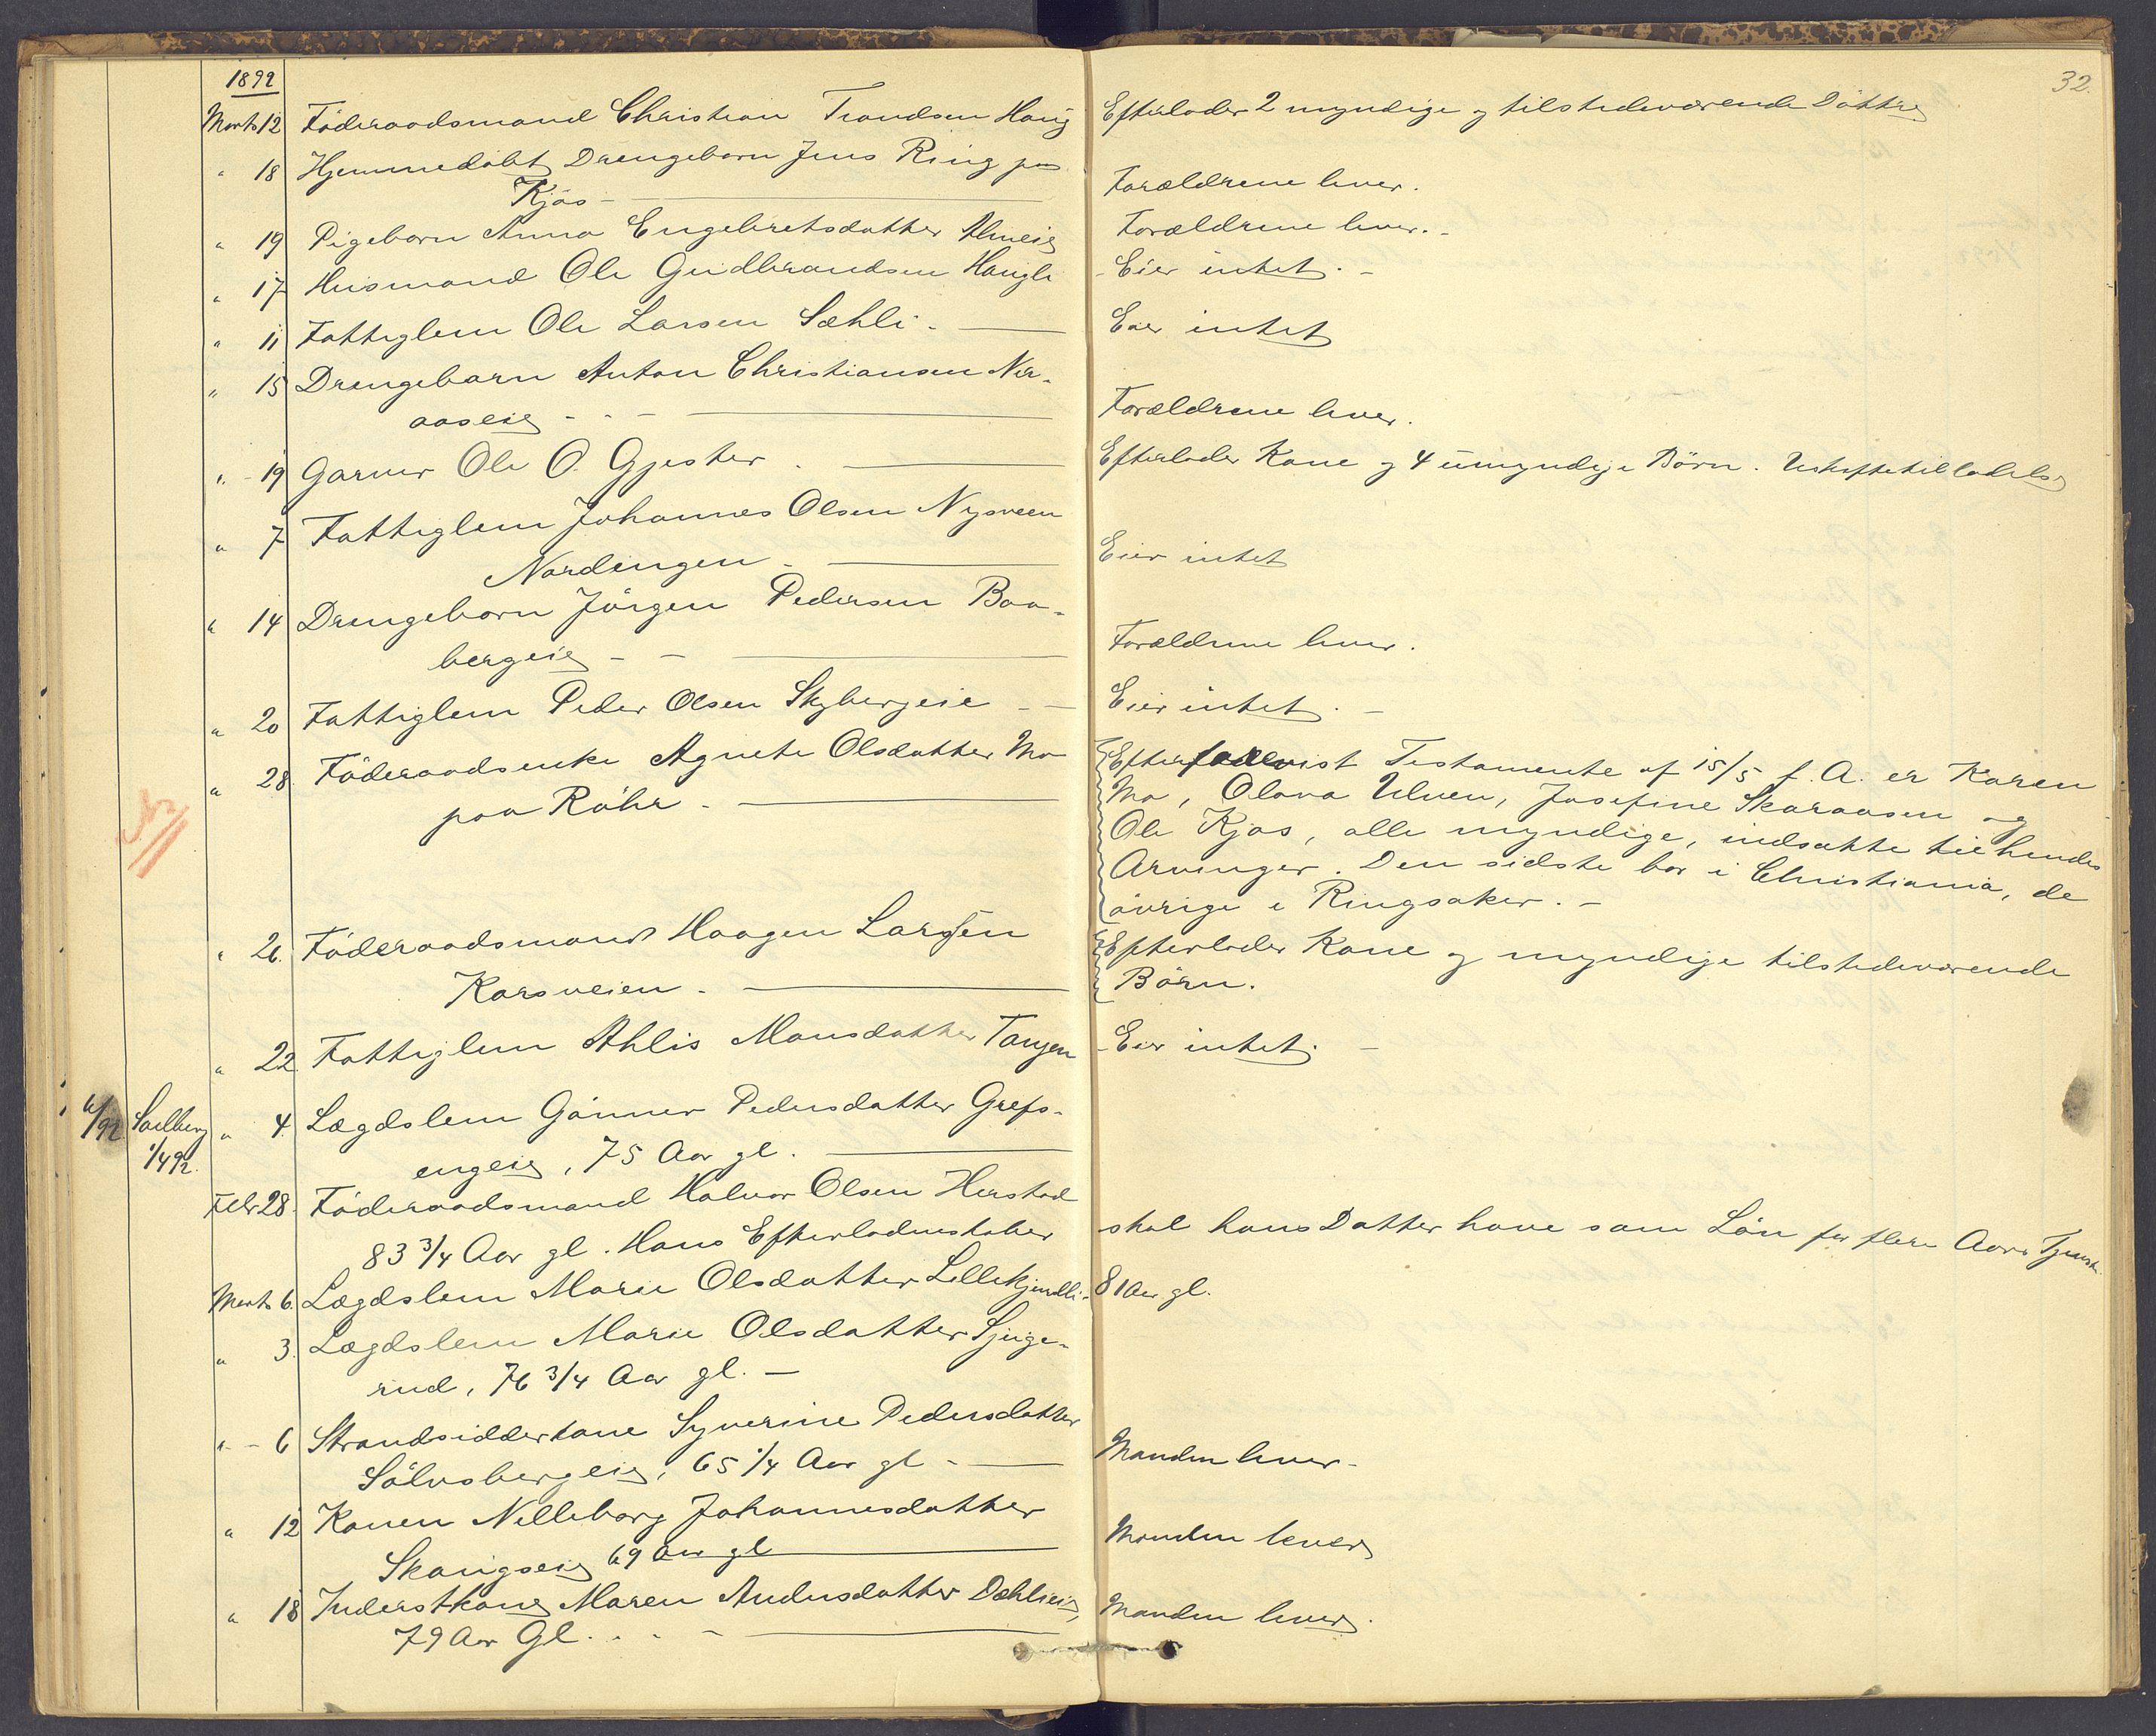 32.
1892
Marts 12 Föderaadsmand Christian Trondsen Haug Efterlader 2 myndige og tilstedeværende Döttre
" 18 Hjemmedöbt Drengebarn Jens Ring paa
Kjös - Forældrene lever.
" 19 Pigebarn Anna Engebretsdatter Ulveie Forældrene lever. -
" 17 Husmand Ole Gudbrandsen Haugli Eier intet. -
" 11 Fattiglem Ole Larsen Sæhli - Eier intet
" 15 Drengebarn Anton Christiansen Ner-
aaseie - - - Forældrene lever.
" - 19 Garver Ole O. Gjester . Efterlader Kone og 4 umyndige Börn. Uskiftetilladelse
" 7 Fattiglem Johannes Olsen Nysveen
Nordengen - Eier intet
" 14 Drengebarn Jörgen Pedersen Baa-
bergeie - - Forældrene lever.
" 20 Fattiglem Peder Olsen Skybergeie - - Eier intet. -
" 28. Föderaadsenke Agnete Olsdatter Mo Efter forevist Testamente af 15/5 f. A. er Karen
paa Röhr - Mo, Olava Ulven, Josefine Skaraasen og
Ole Kjos, alle myndige, indsatte til hendes
Arvinger. Den sidste bor i Christiania, de
övrige i Ringsaker. -
" 26. Föderaadsmand Haagen Larsen Efterlader Kone og myndige tilstedeværende
Korsveien - Börn.
" 22. Fattiglem Ahlis Monsdatter Tangen Eier intet. -
6/92 Sailberg " 4. Lægdslem Gönner Pedersdatter Grefs-
1/4 92. engeie, 75 Aar gl.
Febr 28. Föderaadsmand Halvor Olsen Herstad
83 3/4 Aar gl. Hans Efterladenskaber skal hans Datter have som Lön for flere Aars Tjeneste.
Marts 6. Lægdslem Marie Olsdatter Lillekjendli- 81 Aar gl.
" 3. Lægdslem Marie Olsdatter Sjuge-
rud, 76 3/4 Aar gl. -
" - 6 Strandsidderkone Syverine Pedersdatter
Sölvsbergeie, 65 1/4 Aar gl - Manden lever -
" 12 Konen Nilleborg Johannesdatter
Skaugseie 69 Aar gl Manden lever
" 18 Inderstkone Maren Andersdatter Dæhlieie, Manden lever.
79 Aar Gl. . . -